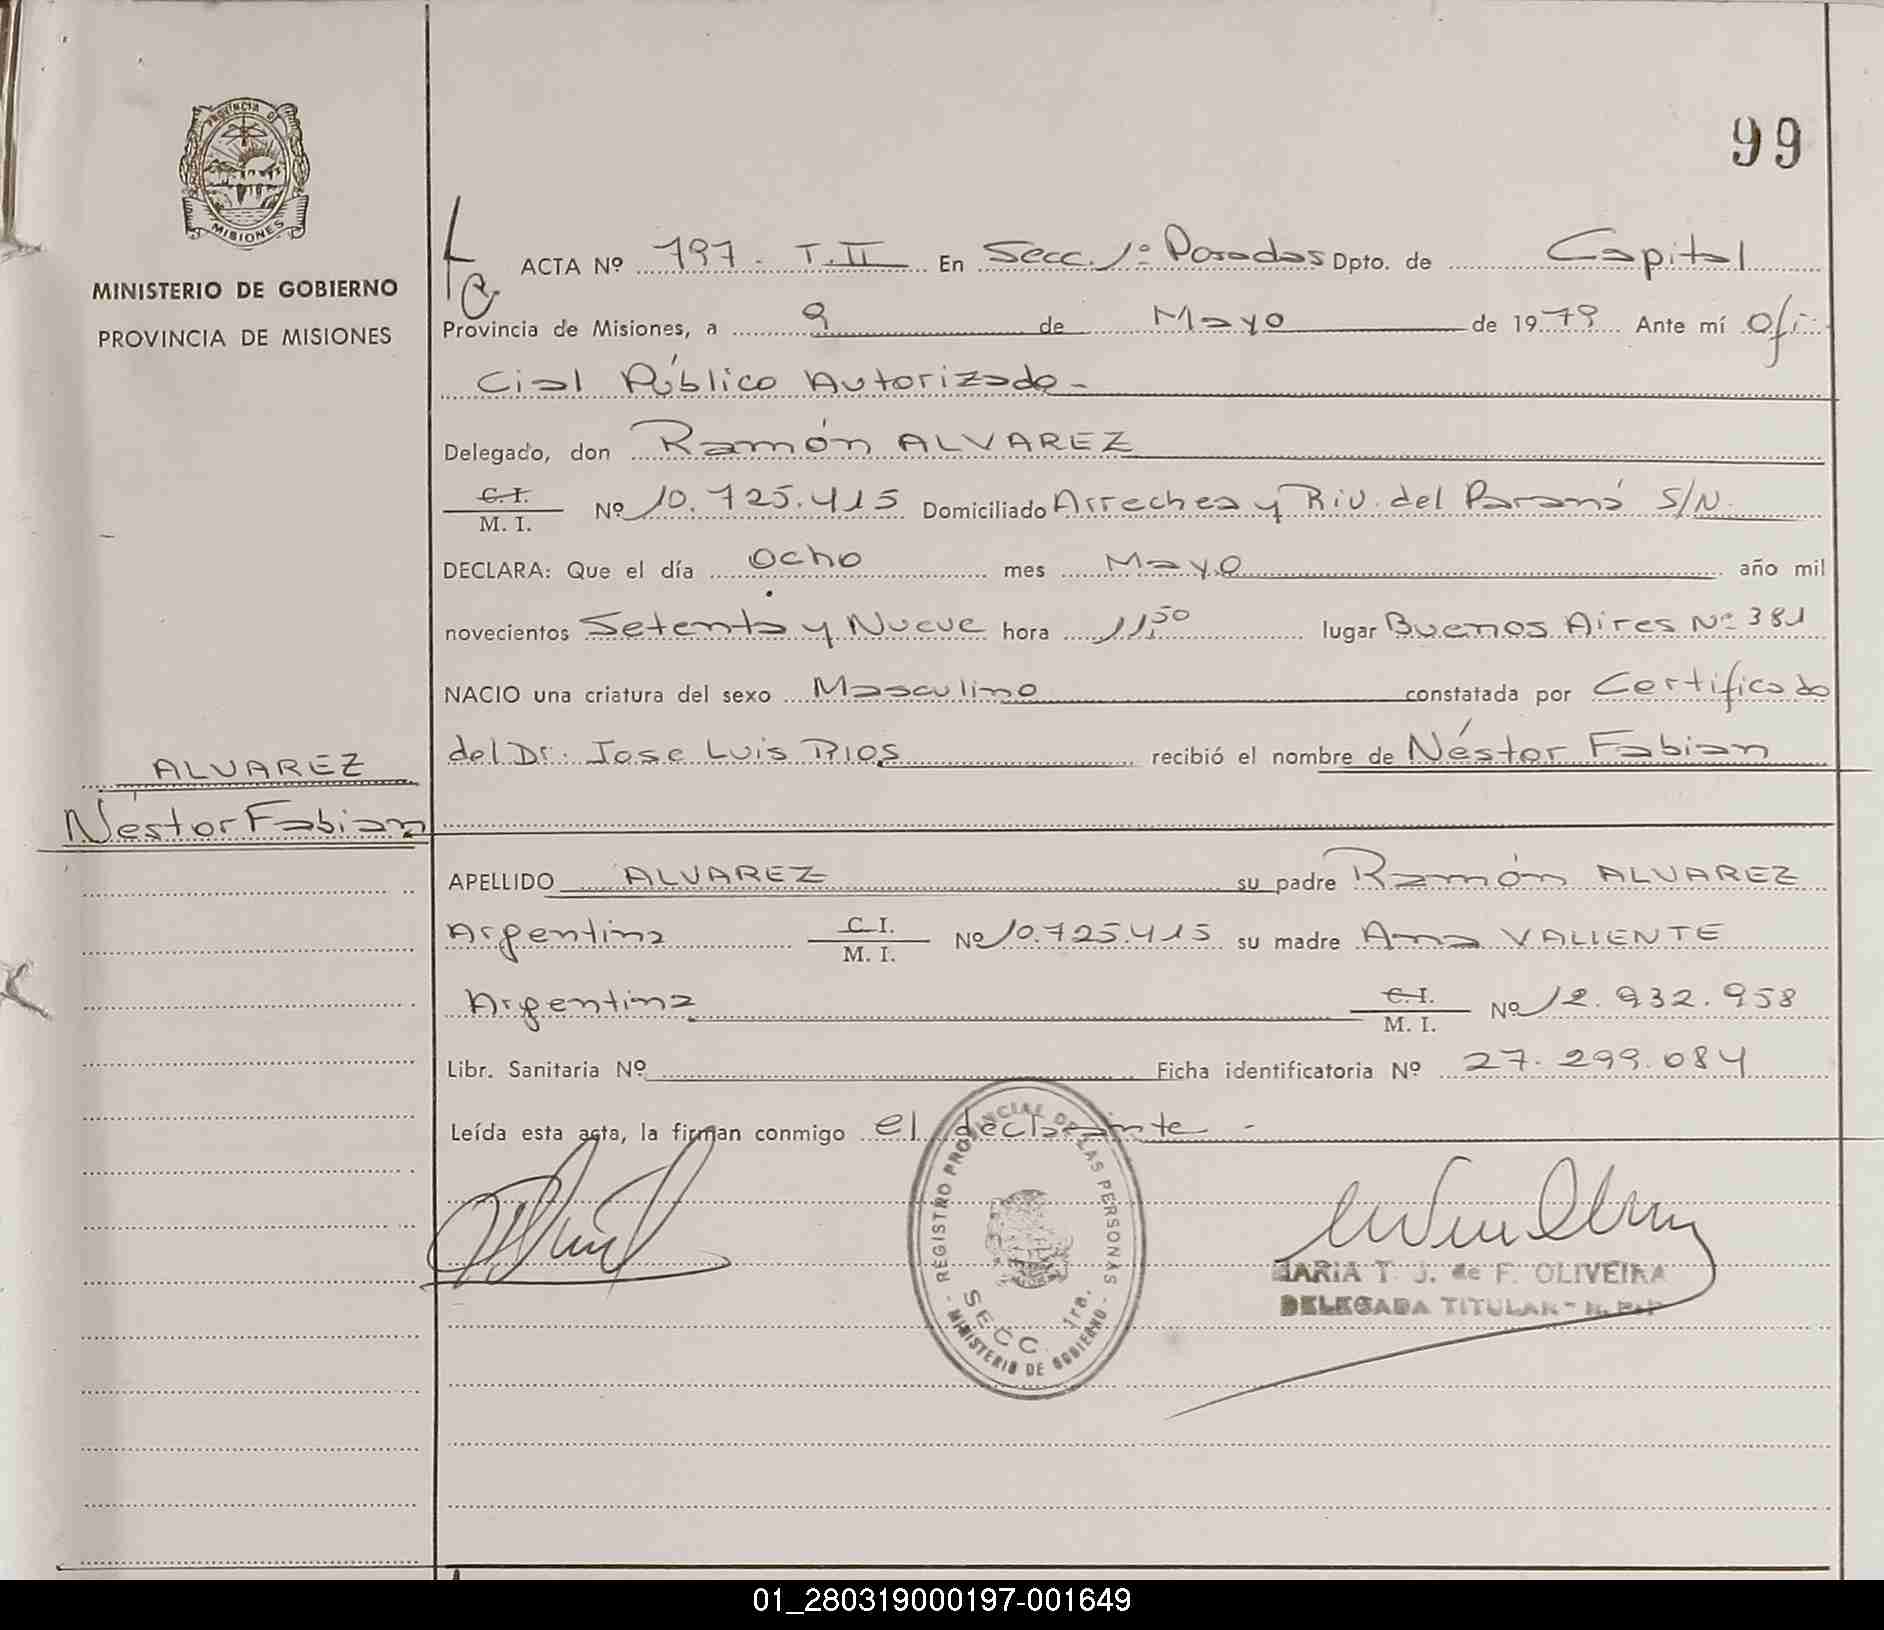 99
PROVINCIA DE
MISIONES
MINISTERIO DE GOBIERNO
PROVINCIA DE MISIONES
ACTA Nº 797. T.II En Secc. 1º Posadas Dpto. de Capital
Provincia de Misiones, a 9 de Mayo de 1979 Ante mí Ofi
cial Público Autorizado-
Delegado, don Ramón ALVAREZ
C. I.
M. I. Nº 10.725.415 Domiciliado Arrechea y Riv. del Paraná S/N.
DECLARA: Que el día ocho mes Mayo año mil
novecientos Setenta y Nueve hora 11,50 lugar Buenos Aires Nº 381
NACIO una criatura del sexo Masculino constatada por Certificado
del Dr. Jose Luis Rios recibió el nombre de Néstor Fabian
ALVAREZ
Néstor Fabian
APELLIDO ALVAREZ su padre Ramón ALVAREZ
Argentina C. I.
M. I. Nº 10.725.415 su madre Ana VALIENTE
Argentina C. I.
M. I. Nº 12.932.958
Libr. Sanitaria Nº Ficha identificatoria Nº 27.299.084
Leída esta acta, la firman conmigo el declarante -
REGISTRO PROVINCIAL DE LAS PERSONAS
SECC. 1ra.
- MINISTERIO DE GOBIERNO -
MARIA T. J. de F. OLIVEIRA
DELEGADA TITULAR - R. P. P.
01_280319000197-001649